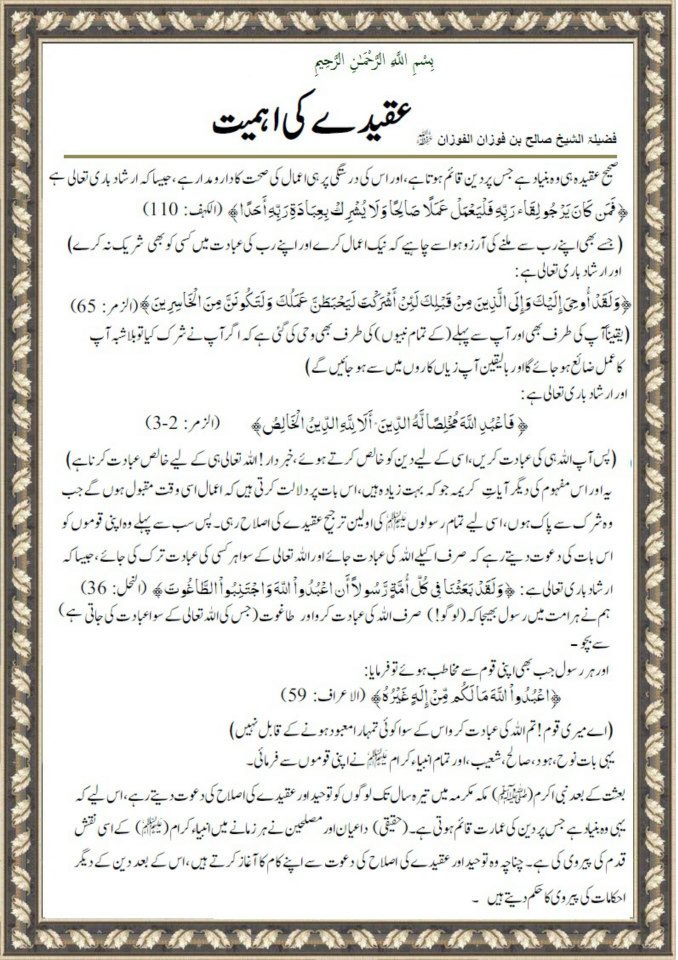 بِسْمِ اللَّهِ الرَّحْمَٰنِ الرَّحِيمِ
عقیدے کی اہمیت
فضیلۃ الشیخ صالح بن فوزان الفوزان ﷾
صحیح عقیدہ ہی وہ بنیاد ہے جس پر دین قائم ہوتا ہے، اور اس کی درستگی پر ہی اعمال کی صحت کا دارومدار ہے، جیسا کہ ارشاد باری تعالی ہے
﴿فَمَن كَانَ يَرْجُو لِقَاء رَبِّهِ فَلْيَعْمَلْ عَمَلًا صَالِحًا وَلَا يُشْرِكْ بِعِبَادَةِ رَبِّهِ أَحَدًا﴾ (الکہف: 110)
( جسے بھی اپنے رب سے ملنے کی آرزو ہو اسے چاہیے کہ نیک اعمال کرے اور اپنے رب کی عبادت میں کسی کو بھی شریک نہ کرے)
اور ارشاد باری تعالی ہے:
﴿وَلَقَدْ أُوحِيَ إِلَيْكَ وَإِلَى الَّذِينَ مِنْ قَبْلِكَ لَئِنْ أَشْرَكْتَ لَيَحْبَطَنَّ عَمَلُكَ وَلَتَكُونَنَّ مِنَ الْخَاسِرِينَ﴾ (الزمر: 65)
(یقیناً آپ کی طرف بھی اور آپ سے پہلے (کے تمام نبیوں) کی طرف بھی وحی کی گئی ہے کہ اگر آپ نے شرک کیا تو بلاشبہ آپ
کا عمل ضائع ہوجائے گا اور بالیقین آپ زیاں کاروں میں سے ہو جائیں گے)
اور ارشاد باری تعالی ہے:
﴿ فَاعْبُدِ اللَّهَ مُخْلِصًا لَّهُ الدِّينَ۔ أَلَا لِلَّهِ الدِّينُ الْخَالِصُ﴾ (الزمر: 2-3)
(پس آپ اللہ ہی کی عبادت کریں، اسی کے لیے دین کو خالص کرتے ہوئے، خبردار! اللہ تعالی ہی کے لیے خالص عبادت کرنا ہے)
یہ اور اس مفہوم کی دیگر آیاتِ کریمہ جو کہ بہت زیادہ ہیں، اس بات پر دلالت کرتی ہیں کہ اعمال اسی وقت مقبول ہوں گے جب
وہ شرک سے پاک ہوں، اسی لیے تمام رسولوں ﷩ کی اولین ترجیح عقیدے کی اصلاح رہی۔ پس سب سے پہلے وہ اپنی قوموں کو
اس بات کی دعوت دیتے رہے کہ صرف اکیلے اللہ کی عبادت جائے اور اللہ تعالی کے سوا ہر کسی کی عبادت ترک کی جائے، جیسا کہ
ارشاد باری تعالی ہے: ﴿وَلَقَدْ بَعَثْنَا فِي كُلِّ أُمَّةٍ رَّسُولاً أَنِ اعْبُدُواْ اللَّهَ وَاجْتَنِبُواْ الطَّاغُوتَ﴾ (النحل: 36)
ہم نے ہر امت میں رسول بھیجا کہ (لوگو!) صرف اللہ کی عبادت کرو اور طاغوت (جس کی اللہ تعالی کے سوا عبادت کی جاتی ہے)
سے بچو۔
اور ہر رسول جب بھی اپنی قوم سے مخاطب ہوئے تو فرمایا:
﴿اعْبُدُواْ اللَّهَ مَا لَكُم مِّنْ إِلَهٍ غَيْرُهُ﴾ (الاعراف: 59)
(اے میری قوم! تم اللہ کی عبادت کرو اس کے سوا کوئی تمہارا معبود ہونے کے قابل نہیں)
یہی بات نوح، ہود، صالح، شعیب، اور تمام انبیاء کرام ﷩ نے اپنی قوموں سے فرمائی۔
بعثت کے بعد نبی اکرم (ﷺ) مکہ مکرمہ میں تیرہ سال تک لوگوں کو توحید اور عقیدے کی اصلاح کی دعوت دیتے رہے، اس لیے کہ
یہی وہ بنیاد ہے جس پر دین کی عمارت قائم ہوتی ہے۔ (حقیقی) داعیان اور مصلحین نے ہر زمانے میں انبیاء کرام (﷩) کے اسی نقش
قدم کی پیروی کی ہے۔ چناچہ وہ توحید اور عقیدے کی اصلاح کی دعوت سے اپنے کام کا آغاز کرتے ہیں، اس کے بعد دین کے دیگر
احکامات کی پیروی کا حکم دیتے ہیں ۔